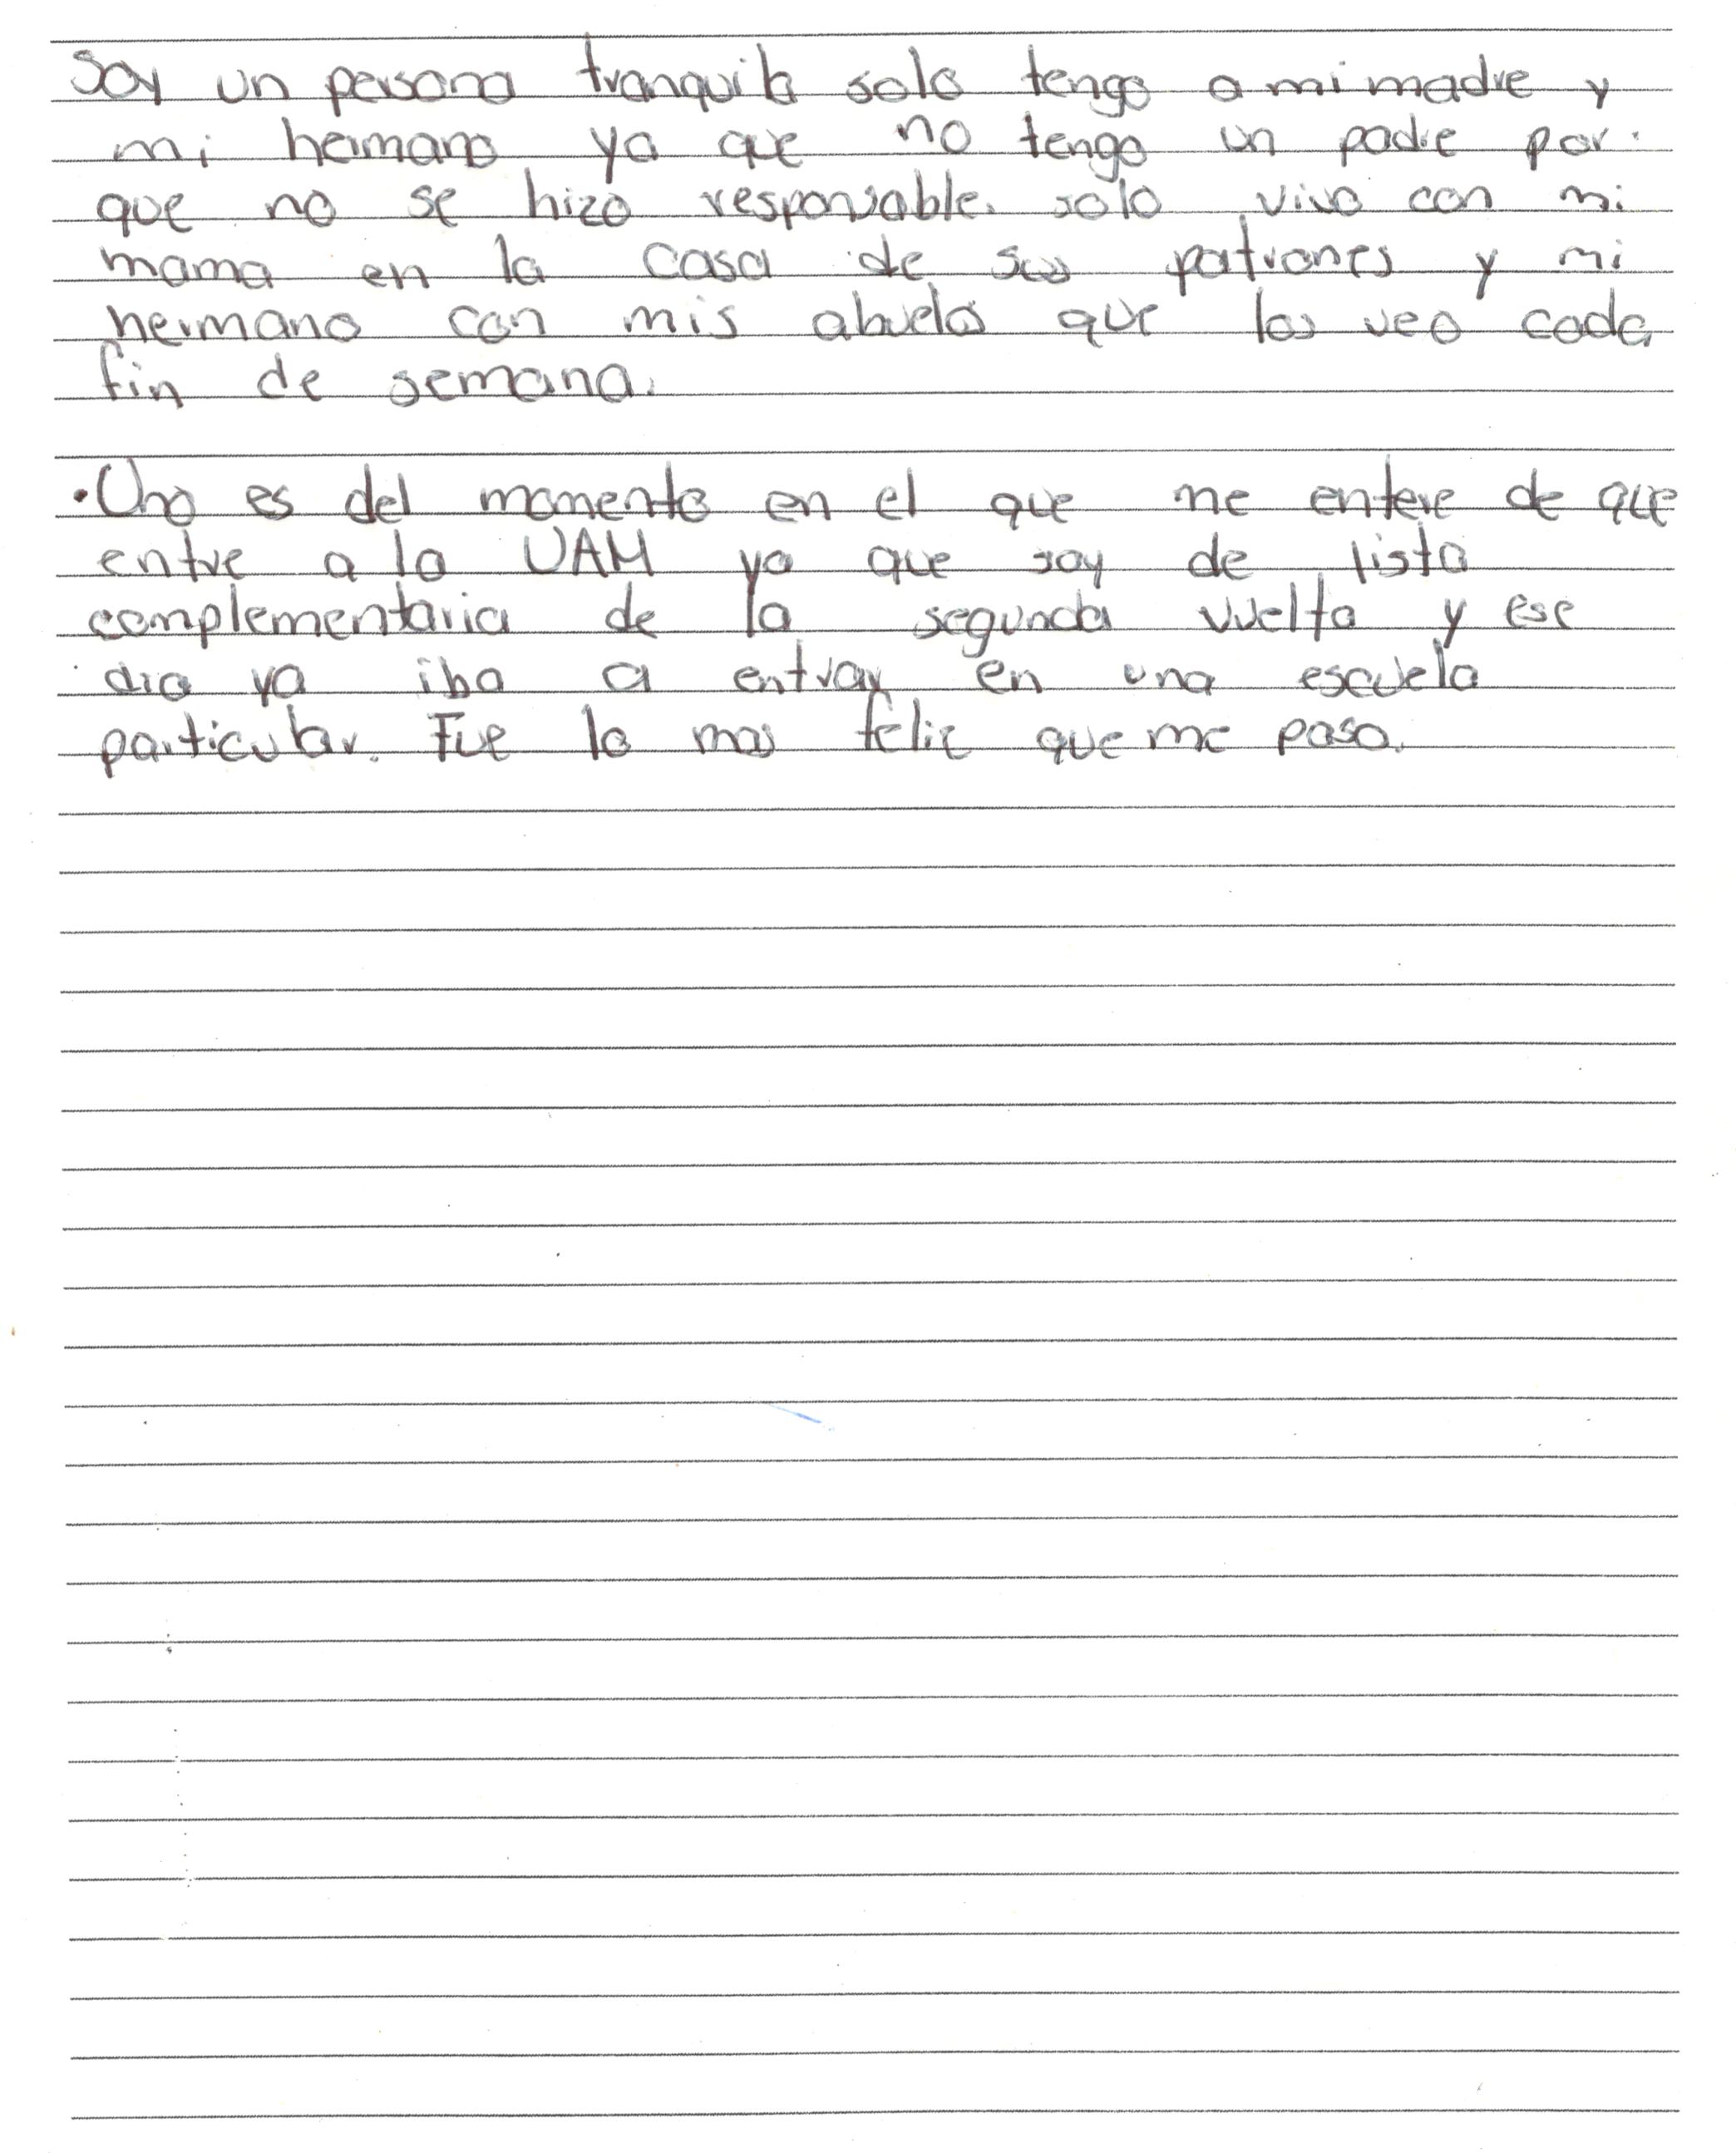 Soy un persona tranquila solo tengo a mi madre y
mi hermano ya que no tengo un padre por
que no se hizo responsable. solo vivo con mi
mama en la casa de sus patrones y mi
hermano con mis abuelos que los veo cada
fin de semana.
• Uno es del momento en el que me entere de que
entre a la UAM ya que soy de lista
complementaria de la segunda vuelta y ese
dia ya iba a entrar en una escuela
particular. Fue lo mas feliz que me paso.